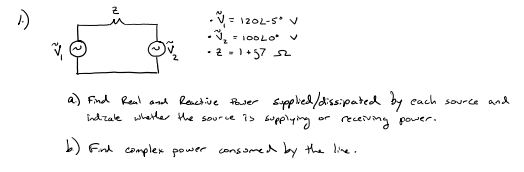 1.)
Z
Ṽ₁
Ṽ₂
• Ṽ₁ = 120∠-5° V
• Ṽ₂ = 100∠0° V
• Z = 1 + j7 Ω
a) Find Real and Reactive Power supplied/dissipated by each source and
indicate whether the source is supplying or receiving power.
b) Find complex power consumed by the line.